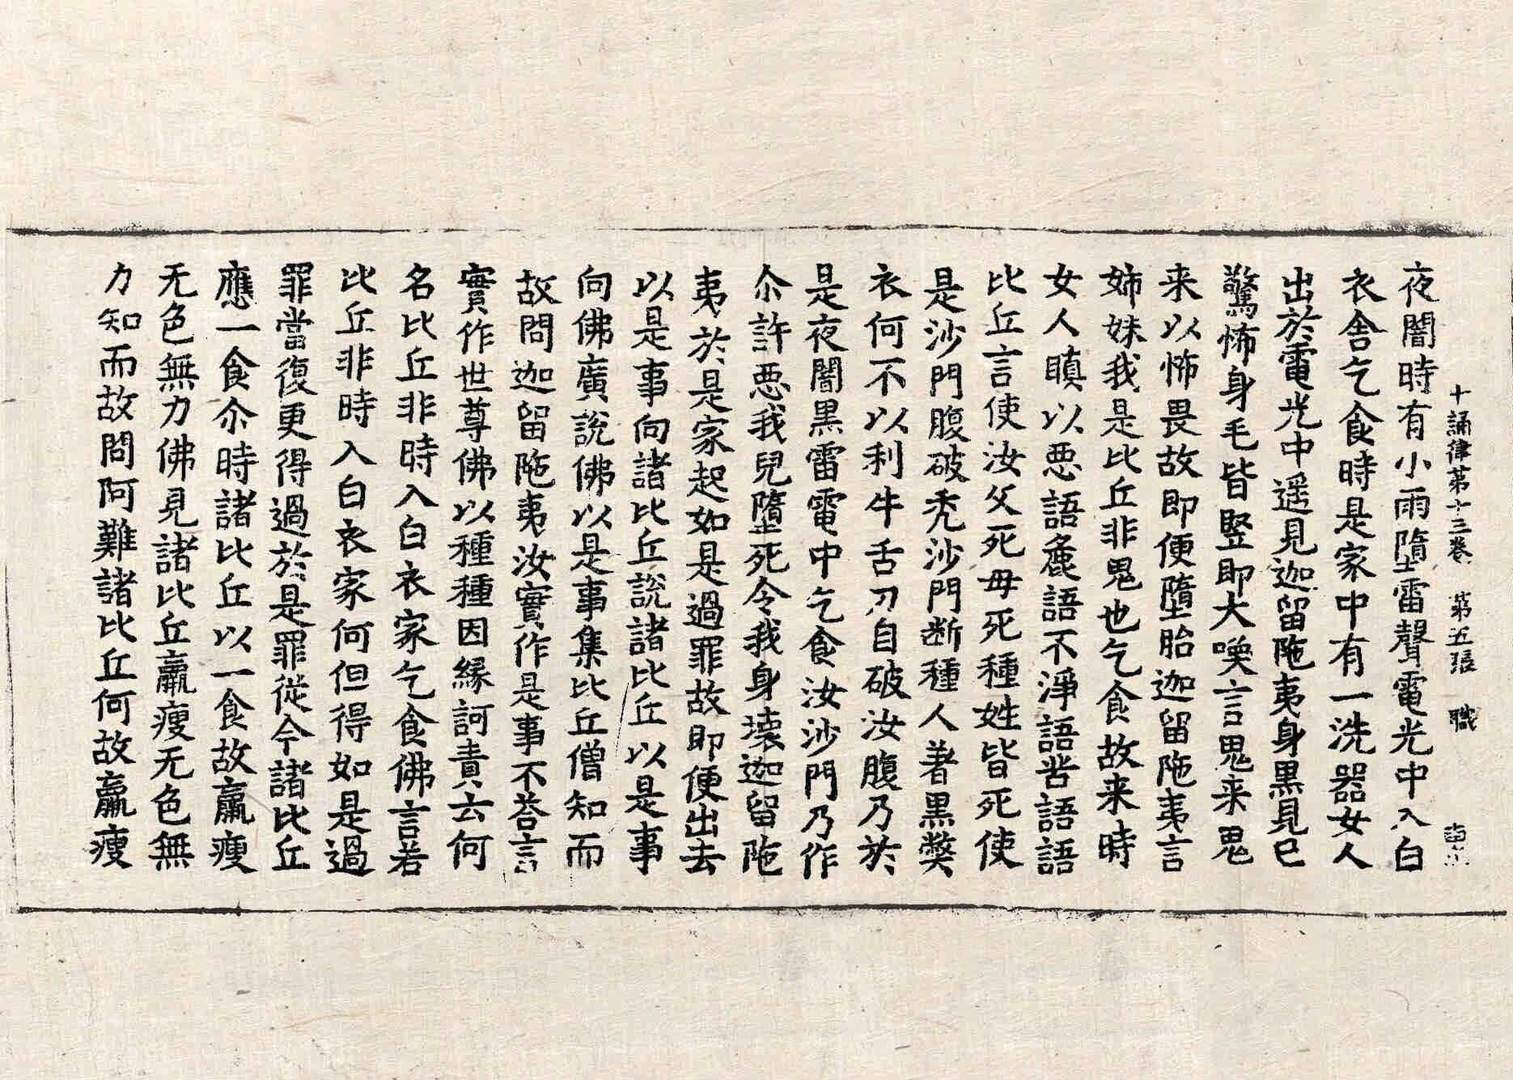 十誦律第十三卷 第五張 職
夜闇時有小雨墮雷聲電光中入白
衣舍乞食時是家中有一洗器女人
出於電光中遥見迦留陁夷身黒見已
驚怖身毛皆竪即大喚言鬼来鬼
来以怖畏故即便墮胎迦留陁夷言
姊妹我是比丘非鬼也乞食故来時
女人瞋以悪語麁語不淨語苦語語
比丘言使汝父死母死種姓皆死使
是沙門腹破秃沙門断種人著黒弊
衣何不以利牛舌刀自破汝腹乃於
是夜闇黒雷電中乞食汝沙門乃作
尒許悪我兒墮死令我身壊迦留陁
夷於是家起如是過罪故即便出去
以是事向諸比丘說諸比丘以是事
向佛廣說佛以是事集比丘僧知而
故問迦留陁夷汝實作是事不答言
實作世尊佛以種種因緣訶責云何
名比丘非時入白衣家乞食佛言若
比丘非時入白衣家何但得如是過
罪當復更得過於是罪從今諸比丘
應一食尒時諸比丘以一食故羸瘦
无色無力佛見諸比丘羸瘦无色無
力知而故問阿難諸比丘何故羸瘦